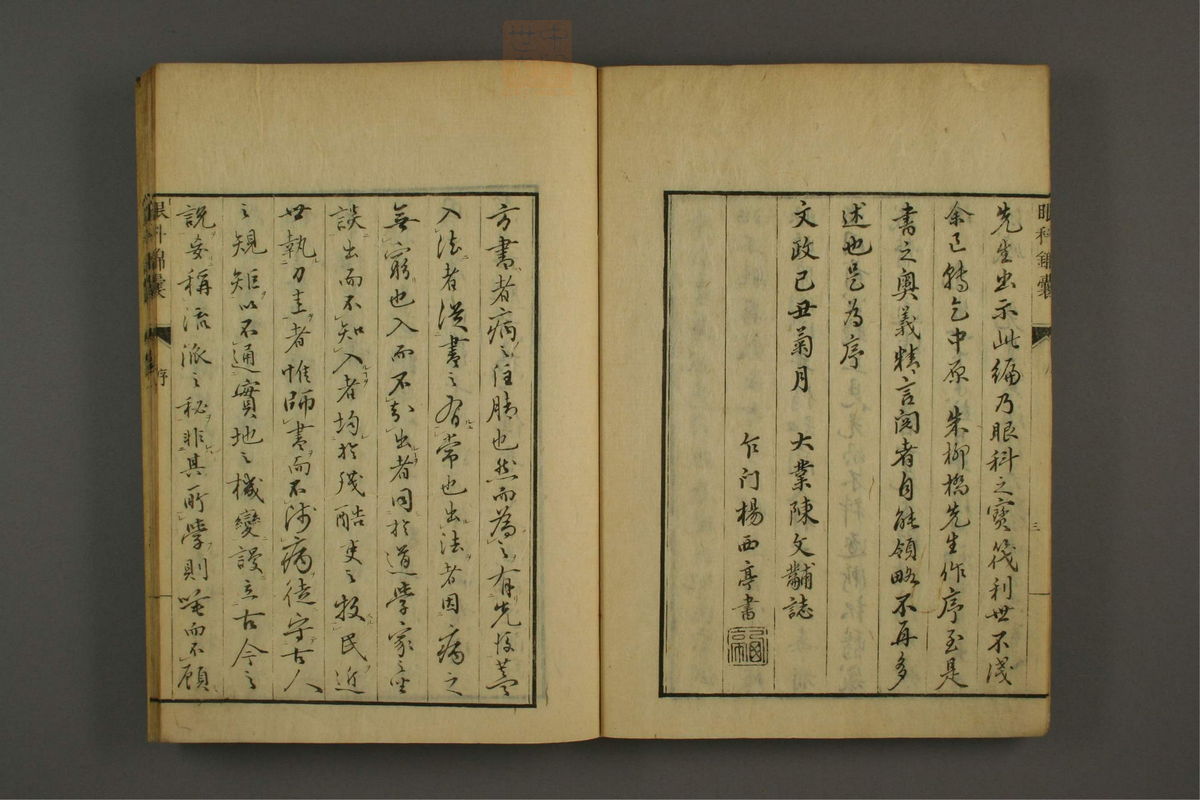 眼科錦囊
三
先生出示此編乃眼科之寶筏利世不淺
余已轉乞中原 朱柳橋先生作序至是
書之奧義精言閱者自能領略不再多
述也是為序
文政己丑菊月 大業陳文黼誌
乍门楊西亭書
方書者病之注脚也然而為之有先後蓋
入法者從書之有常也出法者因病之
無窮也入而不知出者同於道學家之
誤出而不知入者均於殘酷吏之牧民近
世執刀圭者惟師書而不涉病徒守古人
之規矩以不通實地之機變謾立古今之
說妄稱流派之秘非其所學則唾而不顧
眼科錦囊
序